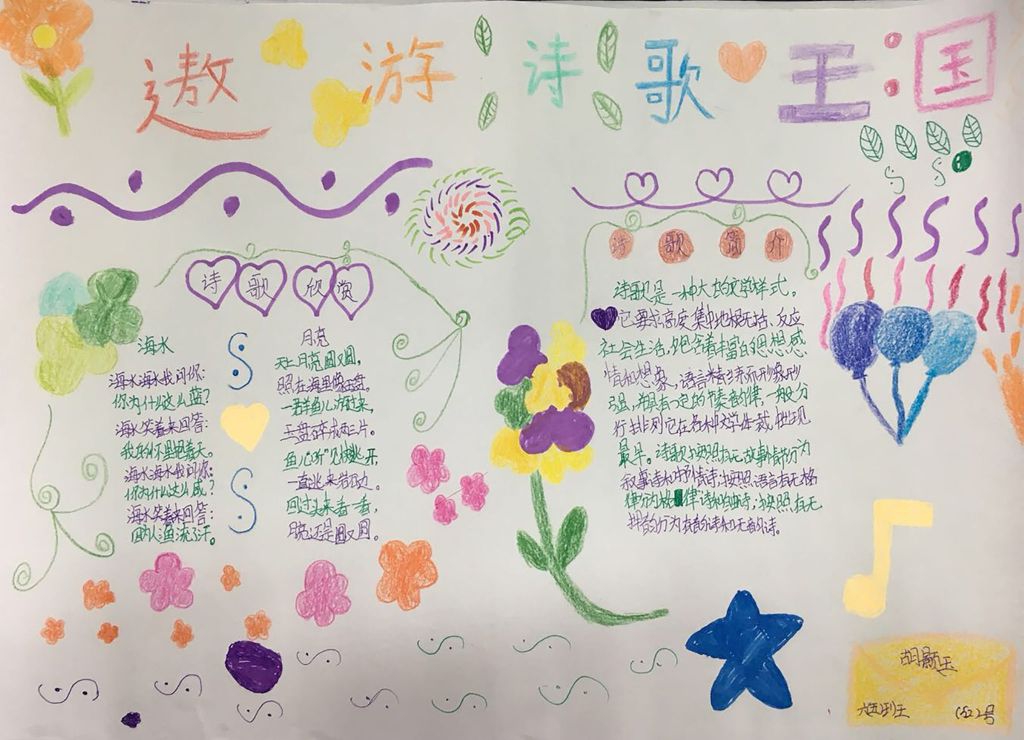 遨游诗歌王国
诗歌欣赏
海水
海水海水我问你:
你为什么这么蓝?
海水笑着来回答:
我的怀里抱着天。
海水海水我问你:
你为什么这么咸?
海水笑着来回答:
因为渔流了汗。
月亮
天上月亮圆又圆,
照在海里像玉盘。
一群鱼儿游过来,
玉盘碎成两三片。
鱼儿吓得快逃开,
一直逃来转边。
回过头来看一看,
月亮还是圆又圆。
诗歌简介
诗歌是一种大的文学样式。
它要求高度集中地概括、反应
社会生活,包含着丰富的思想、感
情和想象,语言精练而形象形
强,并具有一定的节奏音律,一般分
行排列它在各种文学体裁出现
最早。诗歌按照有无故事情节分为
叙事诗和抒情诗,按照语言有无格
律分为格律诗和自由诗,按照有无
押韵分为有韵诗和无韵诗。
六五班